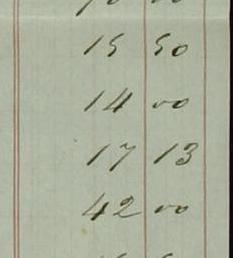 15 50
14 00
17 13
42 00